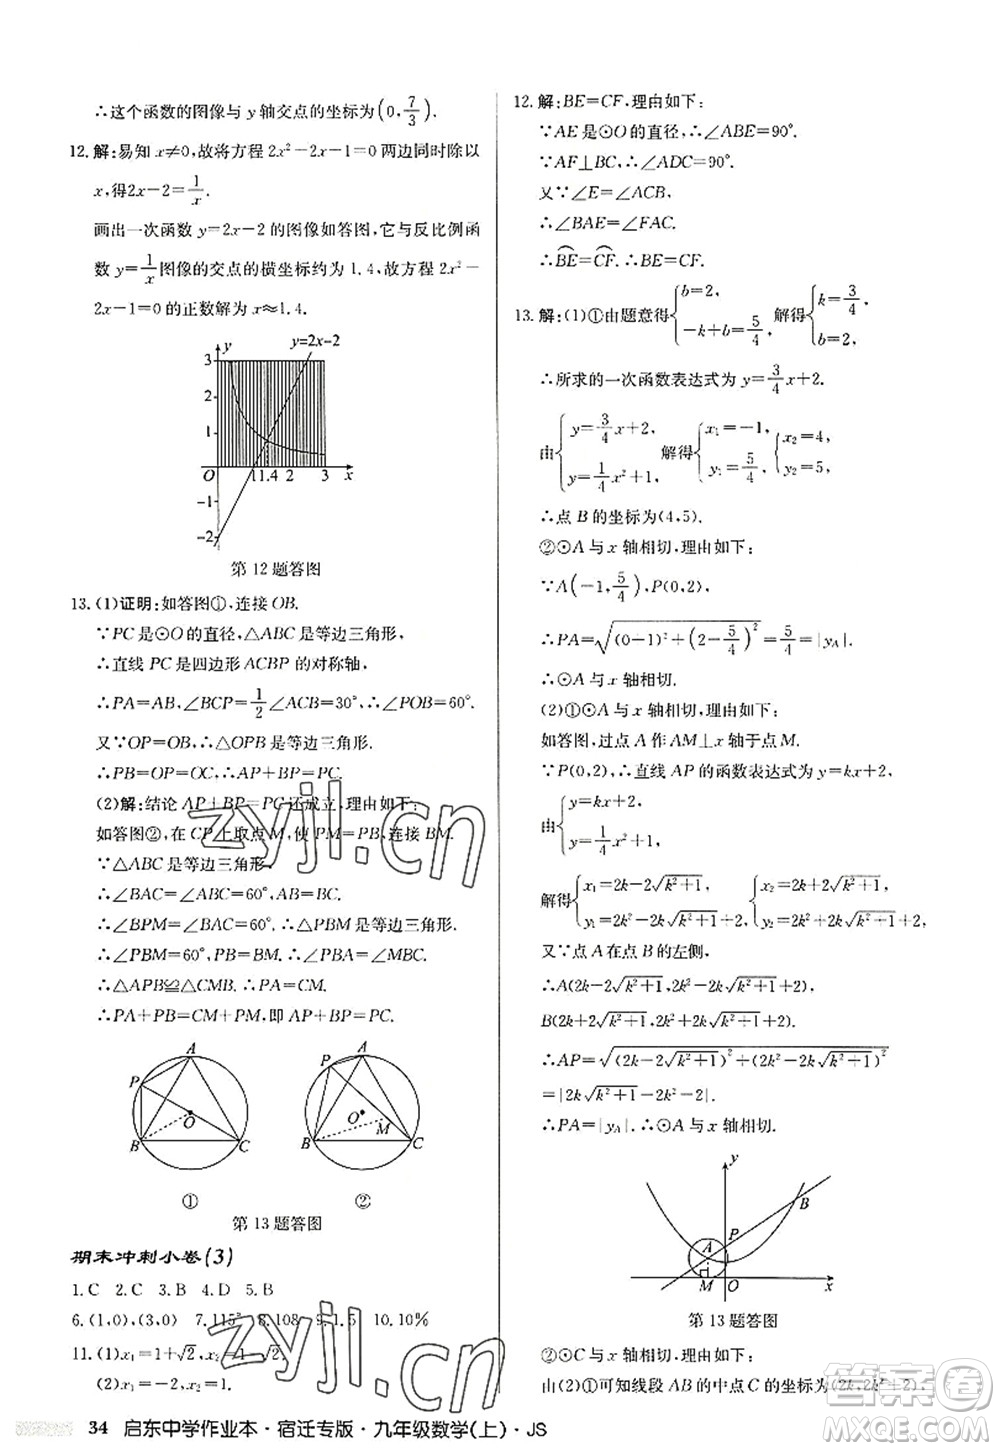 ∴这个函数的图像与 y 轴交点的坐标为(0, 7/3).
12.解:易知 x≠0,故将方程 2x²－2x－1＝0 两边同时除以
x,得2x－2＝1/x.
画出一次函数 y＝2x－2 的图像如答图,它与反比例函
数 y＝1/x 图像的交点的横坐标约为 1.4,故方程 2x²－
2x－1＝0 的正数解为 x≈1.4.
y y=2x-2
3
2
1
O 1 1.4 2 3 x
-1
-2
第 12 题答图
13.(1)证明:如答图①,连接 OB.
∵PC 是⊙O 的直径,△ABC 是等边三角形,
∴直线 PC 是四边形 ACBP 的对称轴,
∴PA＝AB,∠BCP＝1/2∠ACB＝30°,∴∠POB＝60°.
又∵OP＝OB,∴△OPB 是等边三角形.
∴PB＝OP＝OC,∴AP＋BP＝PC.
(2)解:结论 AP＋BP＝PC 还成立,理由如下:
如答图②,在 CP 上取点 M,使 PM＝PB,连接 BM.
∵△ABC 是等边三角形,
∴∠BAC＝∠ACB＝60°,
∴∠BPM＝∠BAC＝60°,∴△PBM 是等边三角形,
∴∠PMB＝60°,PB＝BM＝PM.
∴△APB≌△CMB,∴AP＝CM.
∴PA＋PB＝CM＋PM,即 AP＋BP＝PC.
A P O B C
A P O M B C
① ②
第 13 题答图
期末冲刺小卷(3)
1.C 2.C 3.B 4.D 5.B
6.(1,0),(3,0) 7.115° 8.108 9.1.5 10.10%
11.(1)x₁＝1＋√2,x₂＝1－√2.
(2)x₁＝－2,x₂＝1.
12.解:BE＝CF,理由如下:
∵AE 是⊙O 的直径,∴∠ABE＝90°.
∵AF⊥BC,∴∠ADC＝90°.
又∵∠E＝∠ACB,
∴∠BAE＝∠FAC.
∴BE⌒＝CF⌒. ∴BE＝CF.
13.解:(1)①由题意得{b＝2, －k＋b＝5/4, 解得{k＝3/4, b＝2,
∴所求的一次函数表达式为 y＝3/4x＋2.
由{y＝3/4x＋2, y＝1/4x²＋1, 解得{x₁＝－1, y₁＝5/4, {x₂＝4, y₂＝5,
∴点 B 的坐标为(4,5).
②⊙A 与 x 轴相切,理由如下:
∵A(－1,5/4),P(0,2),
∴PA＝√((0－1)²＋(2－5/4)²)＝5/4＝|y_A|.
∴⊙A 与 x 轴相切.
(2)①⊙A 与 x 轴相切,理由如下:
如答图,过点 A 作 AM⊥x 轴于点 M.
∵P(0,2),∴直线 AP 的函数表达式为 y＝kx＋2,
由{y＝kx＋2, y＝1/4x²＋1,
解得{x₁＝2k－2√(k²＋1), y₁＝2k²－2k√(k²＋1)＋2, {x₂＝2k＋2√(k²＋1), y₂＝2k²＋2k√(k²＋1)＋2,
又∵点 A 在点 B 的左侧,
∴A(2k－2√(k²＋1),2k²－2k√(k²＋1)＋2),
B(2k＋2√(k²＋1),2k²＋2k√(k²＋1)＋2),
∴AP＝√((2k－2√(k²＋1))²＋(2k²－2k√(k²＋1))²)
＝|2k√(k²＋1)－2k²－2|.
∴PA＝|y_A|,∴⊙A 与 x 轴相切.
y P B A M O x
第 13 题答图
②⊙C 与 x 轴相切,理由如下:
由(2)①可知线段 AB 的中点 C 的坐标为(2k,2k²＋2),
34 启东中学作业本·宿迁专版·九年级数学(上)·JS
zyjl.cn
zyjl.cn
答案圈
MXQE.COM